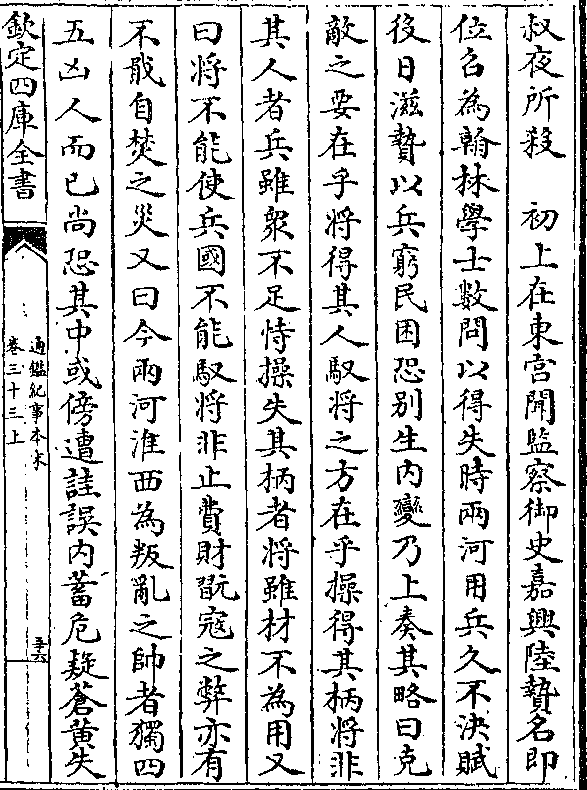 叔夜所殺　初上在東宮聞監察御史嘉興陸贄名即
位召為翰林學士數問以得失時兩河用兵久不決賦
役日滋贄以兵窮民困恐别生内變乃上奏其略曰克
敵之要在乎將得其人馭將之方在乎操得其柄將非
其人者兵雖衆不足恃操失其柄者將雖材不為用又
曰将不能使兵國不能馭将非止費財翫寇之弊亦有
不戢自焚之災又曰今兩河淮西為叛亂之帥者獨四
五凶人而已尚恐其中或傍遭詿誤内蓄危疑蒼黄失
欽定四庫全書
通鑑紀事本末
卷三十三上